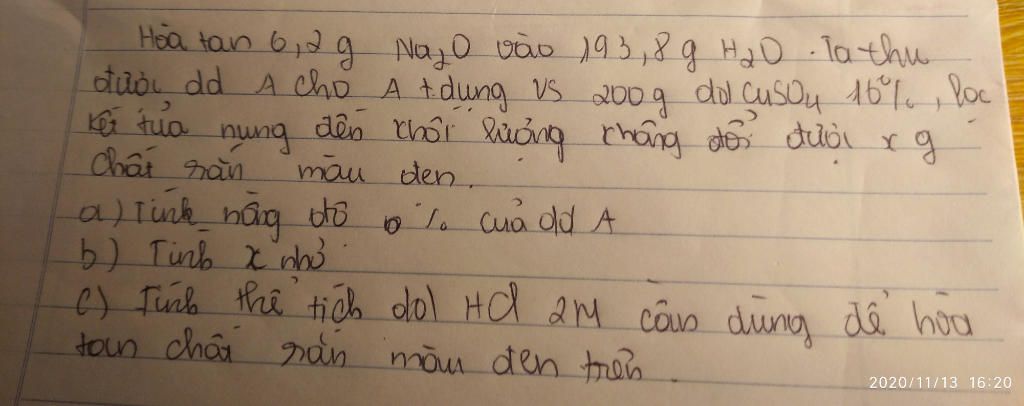 Hòa tan 6,2 g Na₂O vào 193,8 g H₂O. Ta thu
được dd A Cho A t dụng vs 200 g dd CuSO₄ 16%, lọc
kết tủa nung đến khối lượng không đổi được x g
chất rắn màu đen.
a) Tính nồng độ % của dd A
b) Tính x nhỏ
c) Tính thể tích dd HCl 2M cần dùng để hòa
tan chất rắn màu đen trên.
2020/11/13 16:20